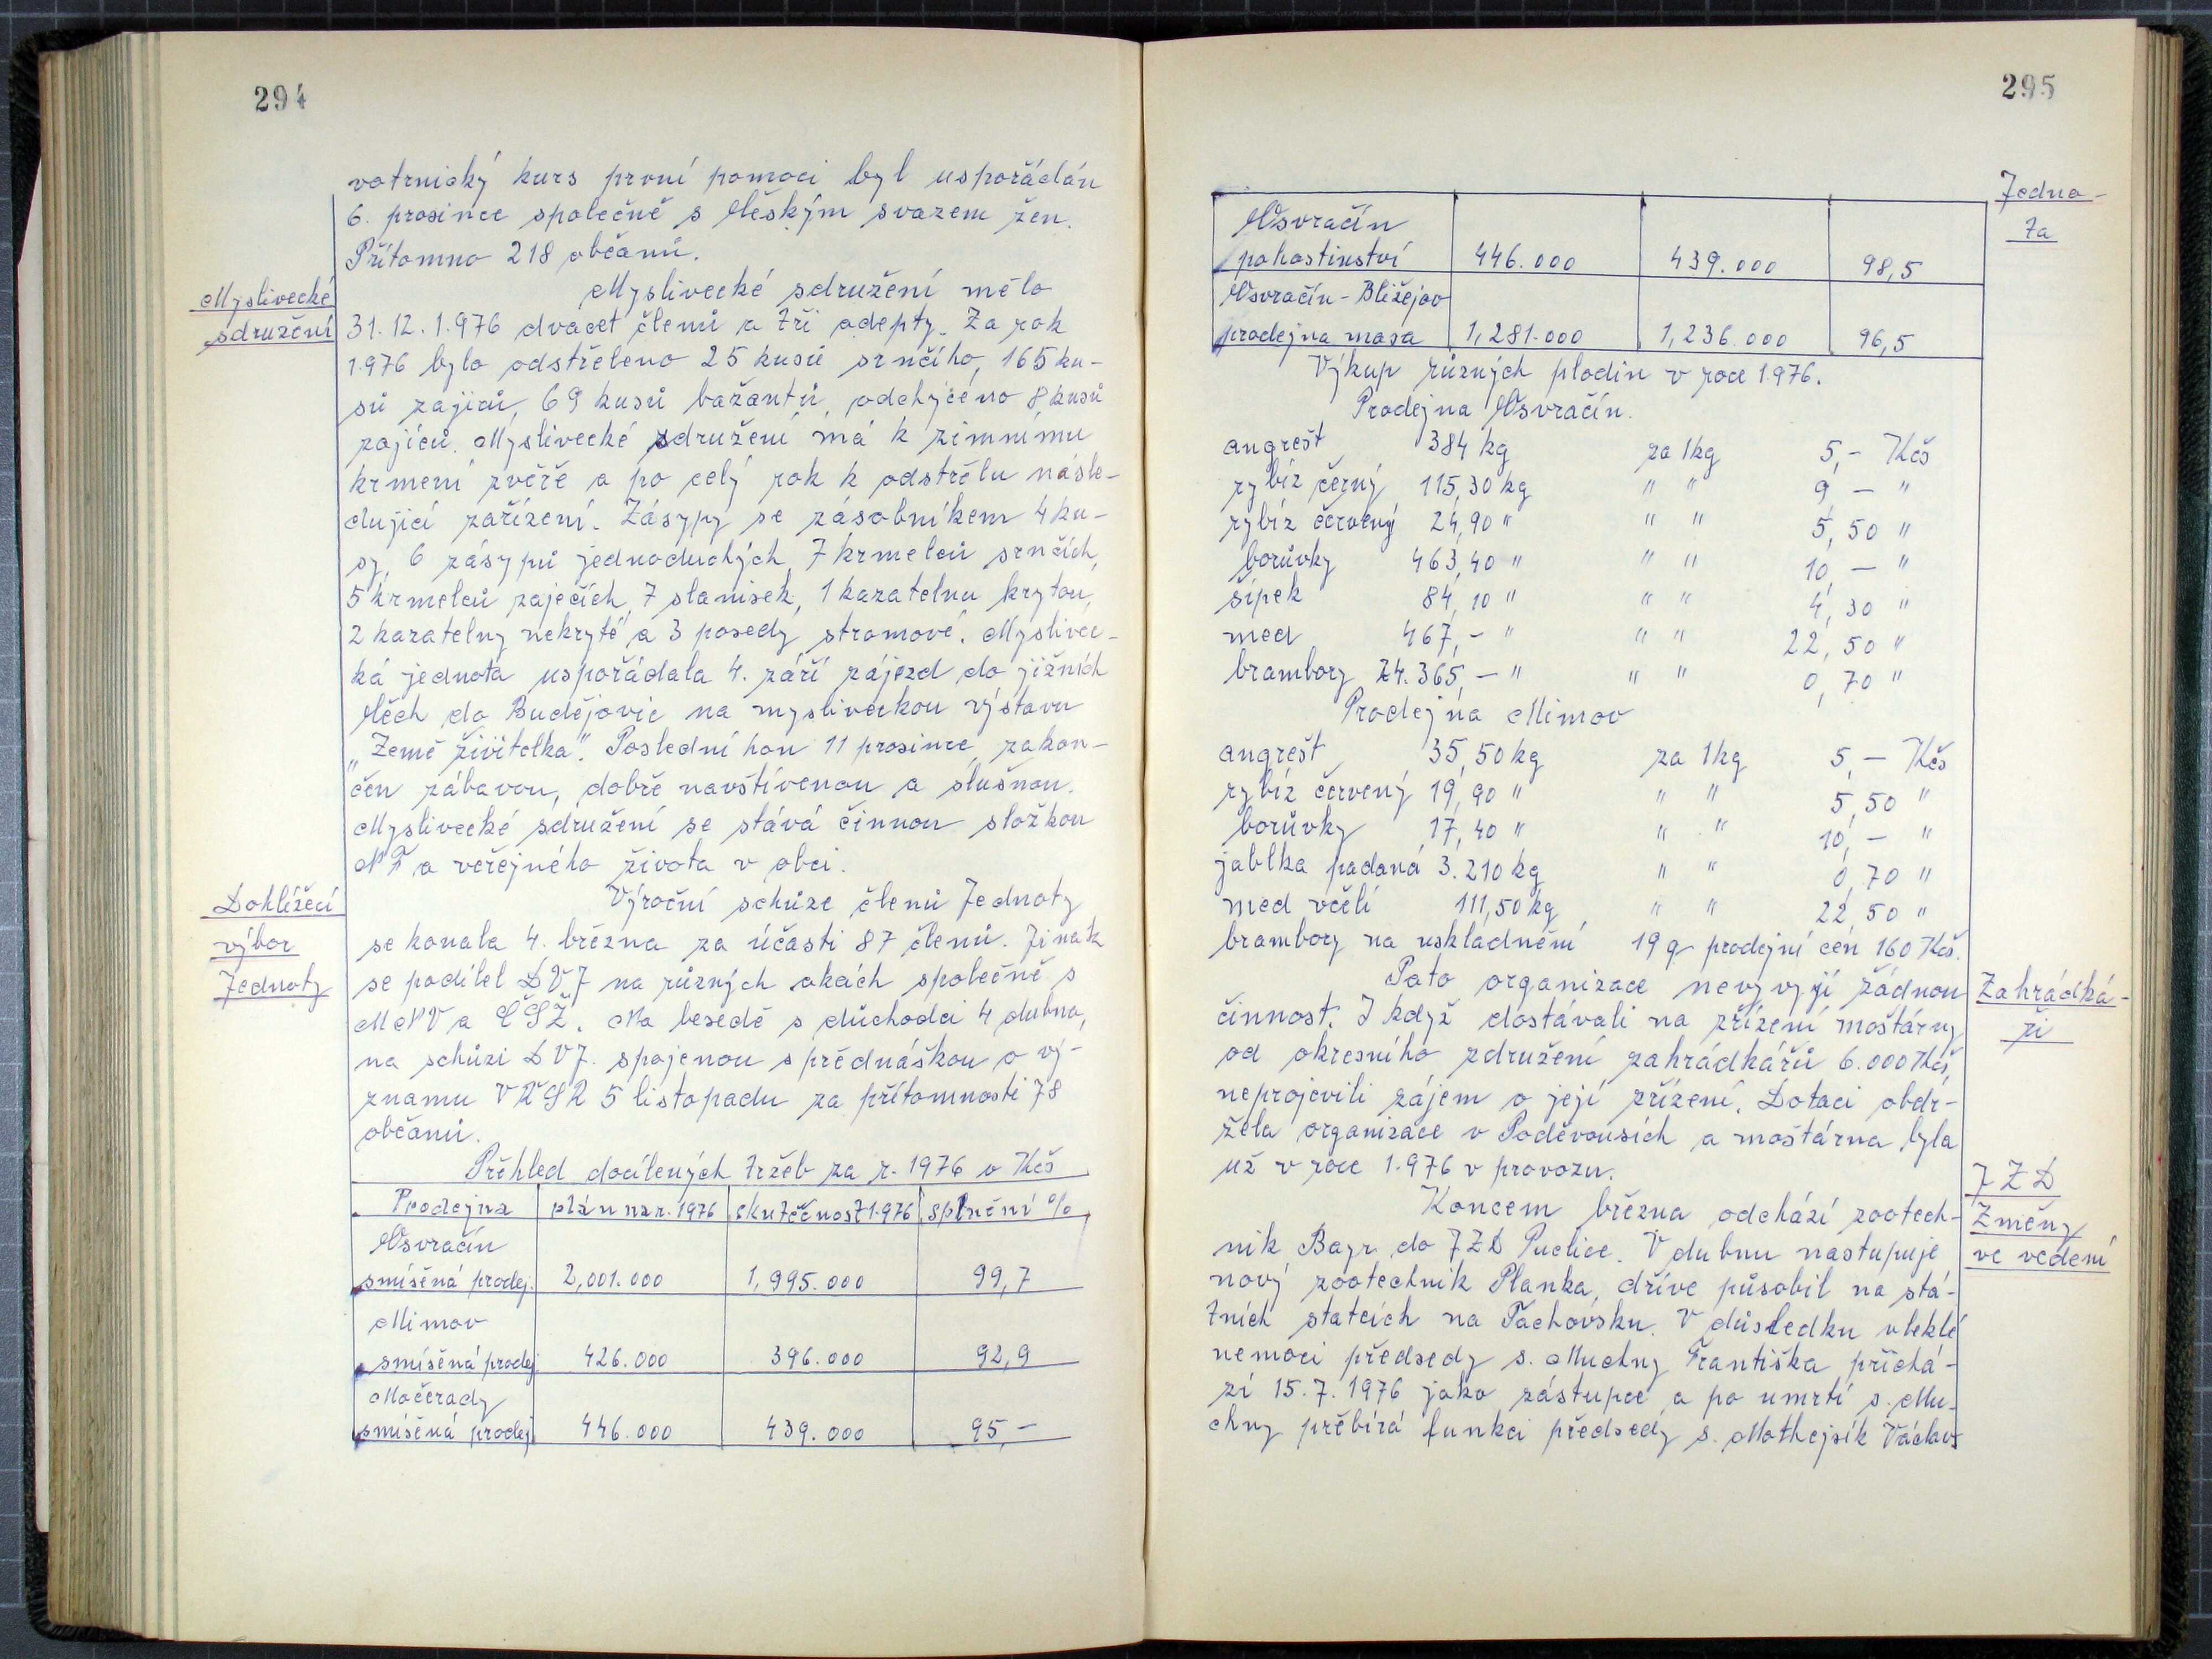 294
votrnický kurs první pomoci byl uspořádán
6. prosince společně s Českým svazem žen.
Přítomno 218 občanů.
Myslivecké
sdružení
Myslivecké sdružení mělo
31.12.1976 dvacet členů a tři adepty. Za rok
1976 bylo odstřeleno 25 kusů srnčího, 165 ku-
sů zajíců, 69 kusů bažantů, odchyceno 8 kusů
zajíců. Myslivecké sdružení má k zimnímu
krmení zvěře a po celý rok k odstřelu násle-
dující zařízení. Zásypy se zásobníkem 4 ku-
sy, 6 zásypů jednoduchých, 7 krmelců srnčích,
5 krmelců zaječích, 7 slanisek, 1 kazatelnu krytou,
2 kazatelny nekryté a 3 posedy stromové. Myslivec-
ká jednota uspořádala 4. září zájezd do jižních
Čech do Budějovic na mysliveckou výstavu
„Země živitelka". Poslední hon 11 prosince zakon-
čen zábavou, dobře navštívenou a slušnou.
Myslivecké sdružení se stává činnou složkou
NF a veřejného života v obci.
Dohlížecí
výbor
Jednoty
Výroční schůze členů Jednoty
se konala 4. března za účasti 87 členů. Jinak
se podílel DVJ na různých akcích společně s
MNV a ČSŽ. Na besedě s důchodci 4 dubna,
na schůzi DVJ. spojenou s přednáškou o vý-
znamu VŘSR 5 listopadu za přítomnosti 78
občanů.
Přehled docílených tržeb za r. 1976 v Kčs
Prodejna plán na r. 1976 skutečnost 1976 splnění %
Osvračín
smíšená prodej. 2,001.000 1,995.000 99,7
Mimov
smíšená prodej 426.000 396.000 92,9
Močerady
smíšená prodej 446.000 439.000 95,-
295
Jedno-
ta
Osvračín
pohostinství 446.000 439.000 98,5
Osvračín - Blížejov
prodejna masa 1,281.000 1,236.000 96,5
Výkup různých plodin v roce 1976.
Prodejna Osvračín.
angrešt 384 kg za 1kg 5,- Kčs
rybíz černý 115,30 kg " " 9 - "
rybíz červený 24,90 " " " 5,50 "
borůvky 463,40 " " " 10,- "
šípek 84,10 " " " 4,30 "
med 467,- " " " 22,50 "
brambory 24.365,- " " " 0,70 "
Prodejna Mimov
angrešt 35,50 kg za 1kg 5,- Kčs
rybíz červený 19,90 " " " 5,50 "
borůvky 17,40 " " " 10,- "
jablka padaná 3.210 kg " " 0,70 "
med včelí 111,50 kg " " 22,50 "
brambory na uskladnění 19 q prodejní cen 160 Kčs.
Zahrádká-
ři
Tato organizace nevyvyjí žádnou
činnost. I když dostávali na zřízení moštárny
od okresního združení zahrádkářů 6.000 Kčs,
neprojevili zájem o její zřízení. Dotaci obdr-
žela organizace v Poděvousích a moštárna byla
už v roce 1976 v provozu.
JZD
Změny
ve vedení
Koncem března odchází zootech-
nik Bayr do JZD Puclice. V dubnu nastupuje
nový zootechnik Planka, dříve působil na stá-
tních statcích na Tachovsku. V důsledku vleklé
nemoci předsedy s. Muchny Františka přichá-
zí 15.7.1976 jako zástupce a po umrtí s. Mu-
chny přebírá funkci předsedy s. Mathejsík Václav